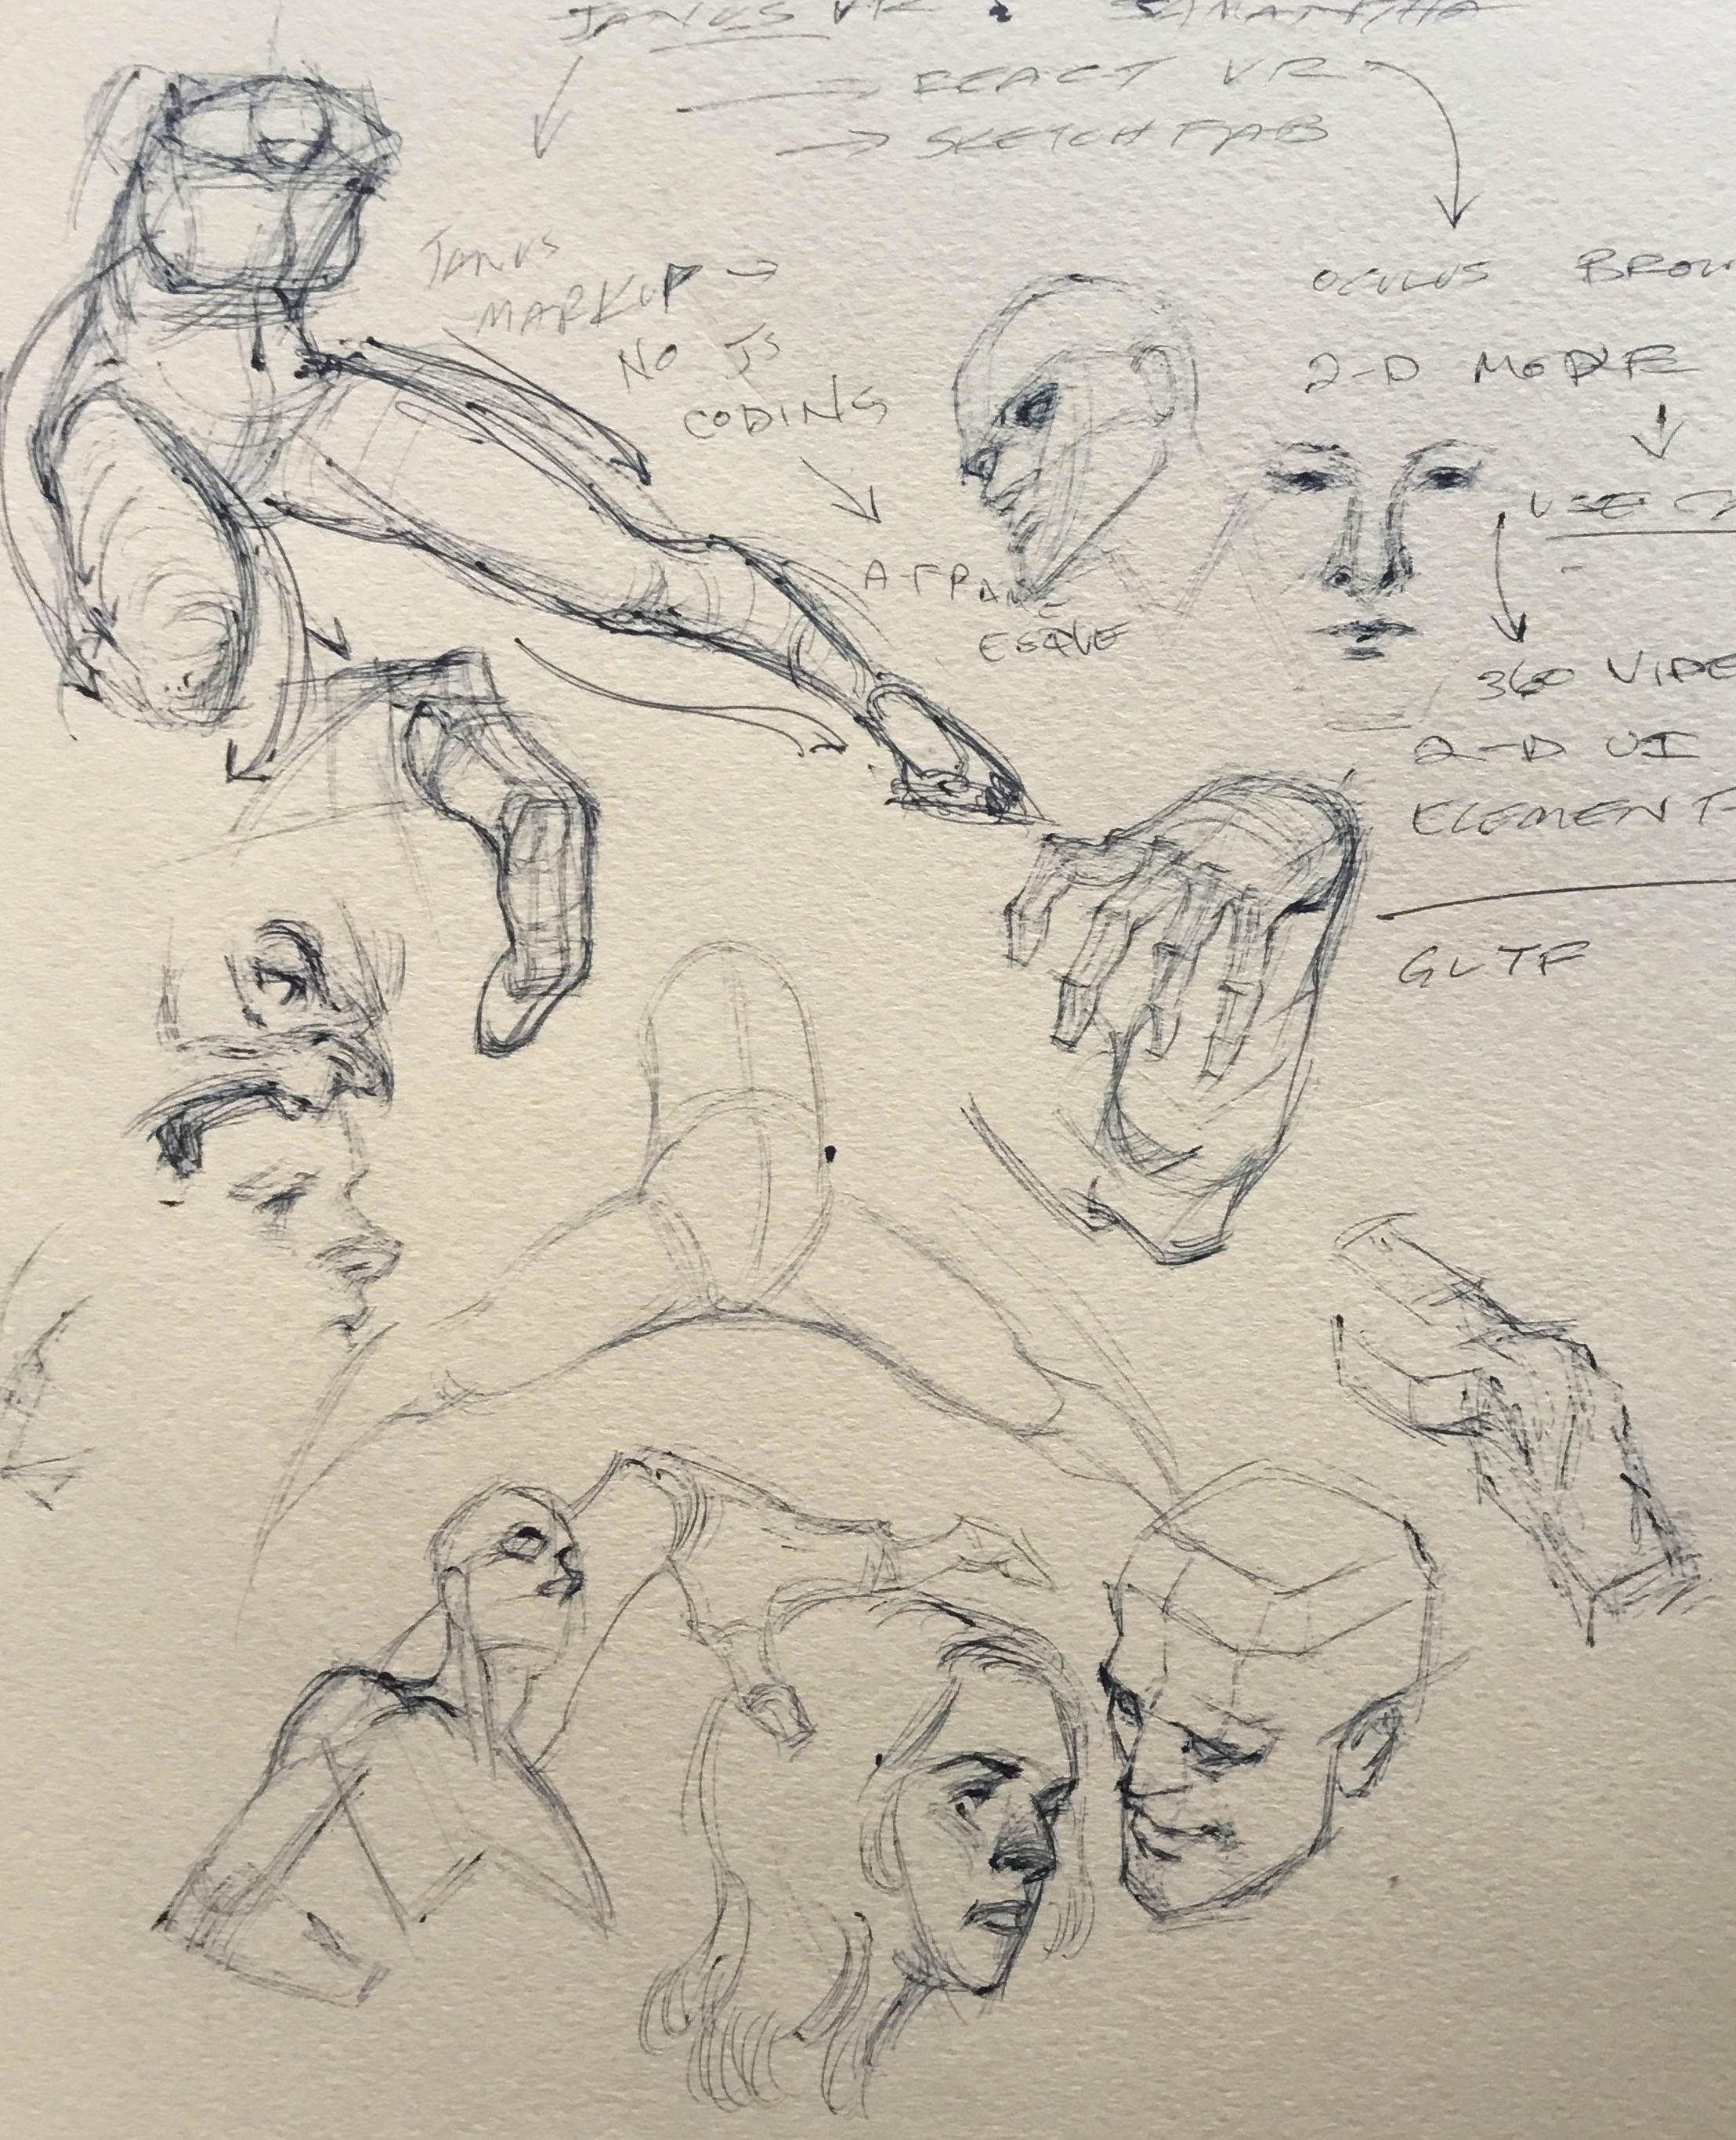 JANUS VR · SAMANTHA
→ REACT VR
→ SKETCHFAB
JANUS
MARKUP →
NO JS
CODING
A-FRAME
ESQUE
OCULUS BROW
2-D MODE
USE
360 VIDE
2-D UI
ELEMENT
GLTF